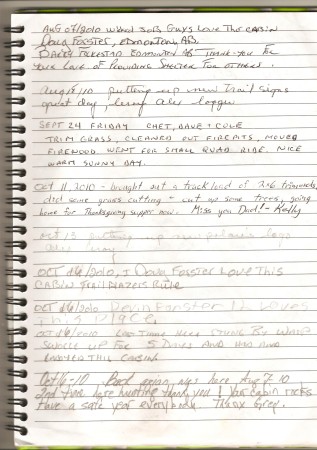 AUG 07/2010 JOB GUYS LOVE THE CABIN
DOUG FORSTER, EDMONTON, AB.
EDMONTON AB THANK-YOU FOR
YOUR LOVE OF PROVIDING SHELTER FOR OTHERS.
Aug 10 putting up new trail signs
great day,
SEPT 24 FRIDAY CHET, DAVE + COLE
TRIM GRASS, CLEANED OUT FIREPITS, MOVED
FIREWOOD WENT FOR SMALL QUAD RIDE. NICE
WARM SUNNY DAY.
Oct 11, 2010 - brought out a truck load of 2x6
did some grass cutting + cut up some trees, going
home for Thanksgiving supper now. Miss you Dad! - Kelly
Oct 13 putting up
OCT 16/2010, I DOUG FORSTER LOVE THIS
CABIN TRAILBLAZERS RULE
OCT 16/2010 Devin Forster 12 Loves
this PLACE,
OCT 16/2010 LAST TIME HERE STUNG BY WASP
SWOLE UP FOR 5 DAYS AND HAD AND
ENJOYED THIS CABIN
Oct 16-10 Back again, was here Aug 7-10
2nd time here hunting thank you! Your cabin rocks
Have a safe year everybody. Thanx Greg.